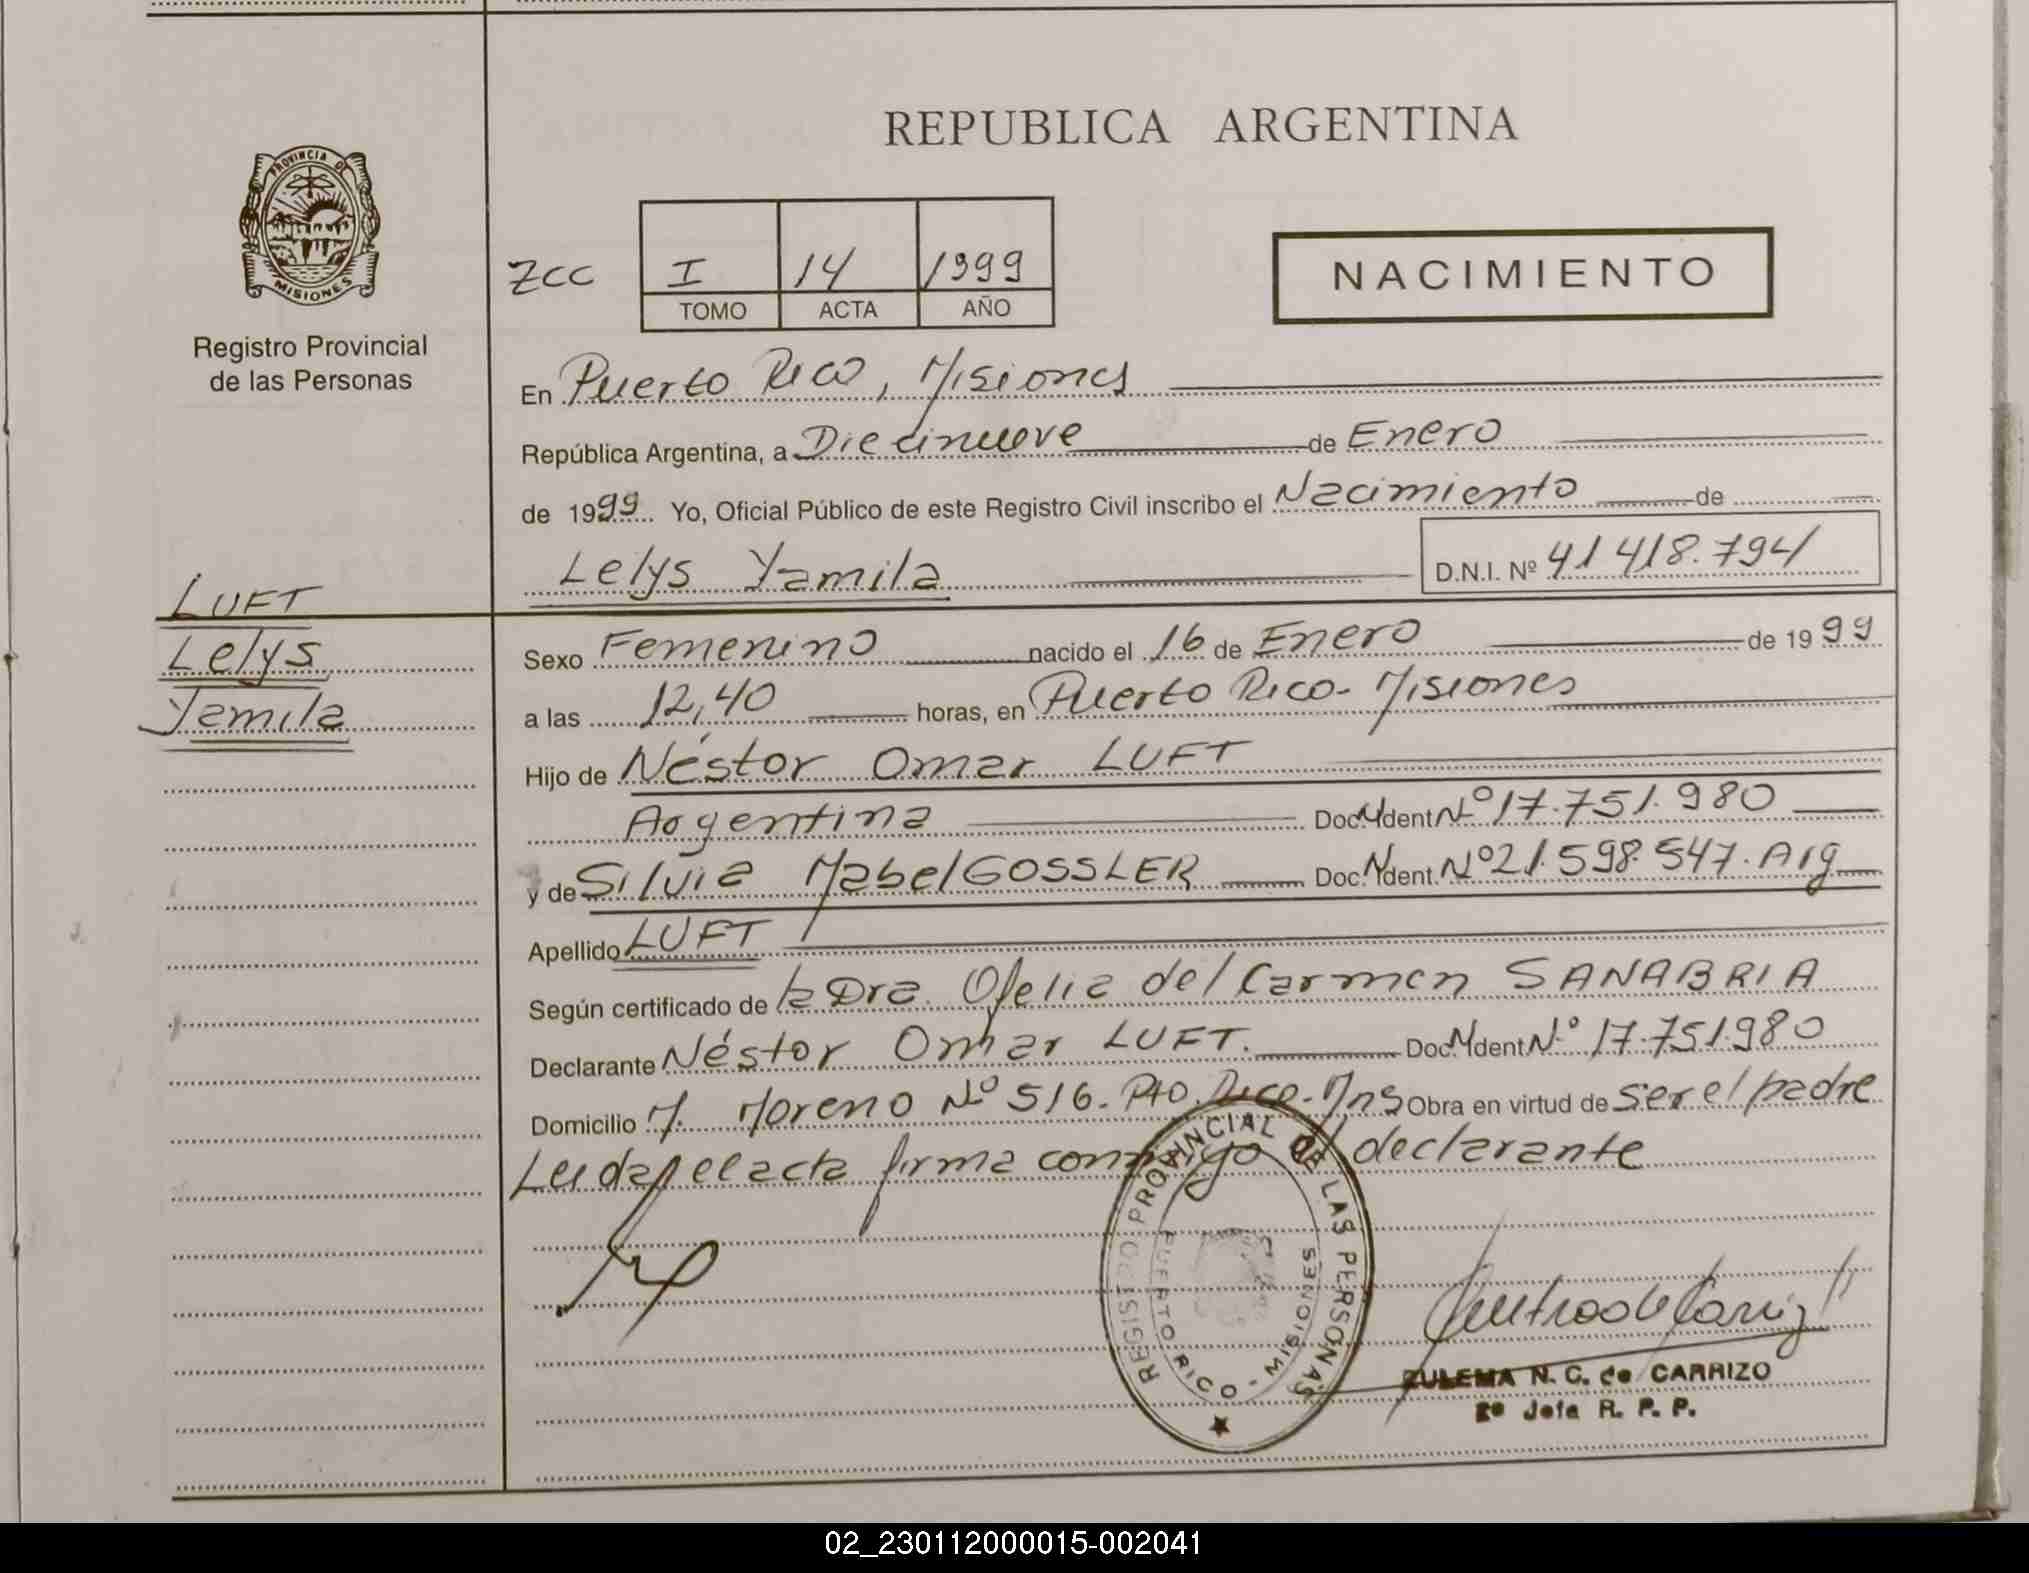 REPUBLICA ARGENTINA
PROVINCIA DE
MISIONES
Registro Provincial
de las Personas
ZCC I 14 1999
TOMO ACTA AÑO
NACIMIENTO
En Puerto Rico, Misiones
República Argentina, a Diecinueve de Enero
de 1999 Yo, Oficial Público de este Registro Civil inscribo el Nacimiento de
Lelys Yamila D.N.I. Nº 41 418.794
LUFT
Lelys
Yamila
Sexo Femenino nacido el 16 de Enero de 1999
a las 12,40 horas, en Puerto Rico - Misiones
Hijo de Néstor Omar LUFT
Argentina Doc. Ident Nº 17.751.980
y de Silvia Mabel GOSSLER Doc. Ident. Nº 21.598.547. Arg
Apellido LUFT
Según certificado de la Dra. Ofelia del Carmen SANABRIA
Declarante Néstor Omar LUFT. Doc. Ident Nº 17.751.980
Domicilio M. Moreno Nº 516. Pto. Rico - Mns Obra en virtud de ser el padre
Leida el acta firma conmigo el declarante
REGISTRO PROVINCIAL DE LAS PERSONAS
PUERTO RICO - MISIONES
ZULEMA N. C. de CARRIZO
2º Jefa R. P. P.
02_230112000015-002041